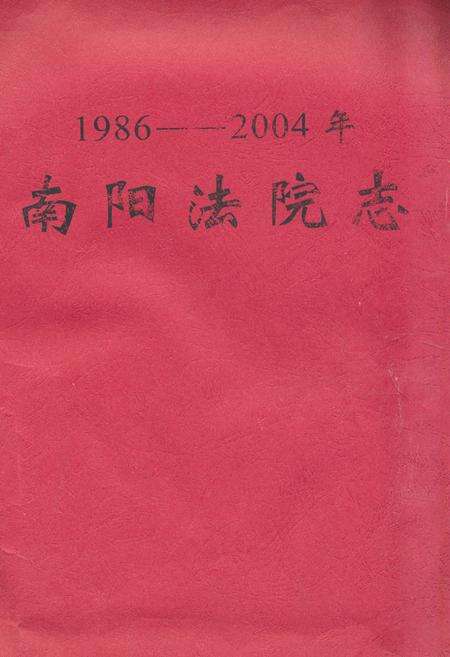 1986——2004年
南阳法院志